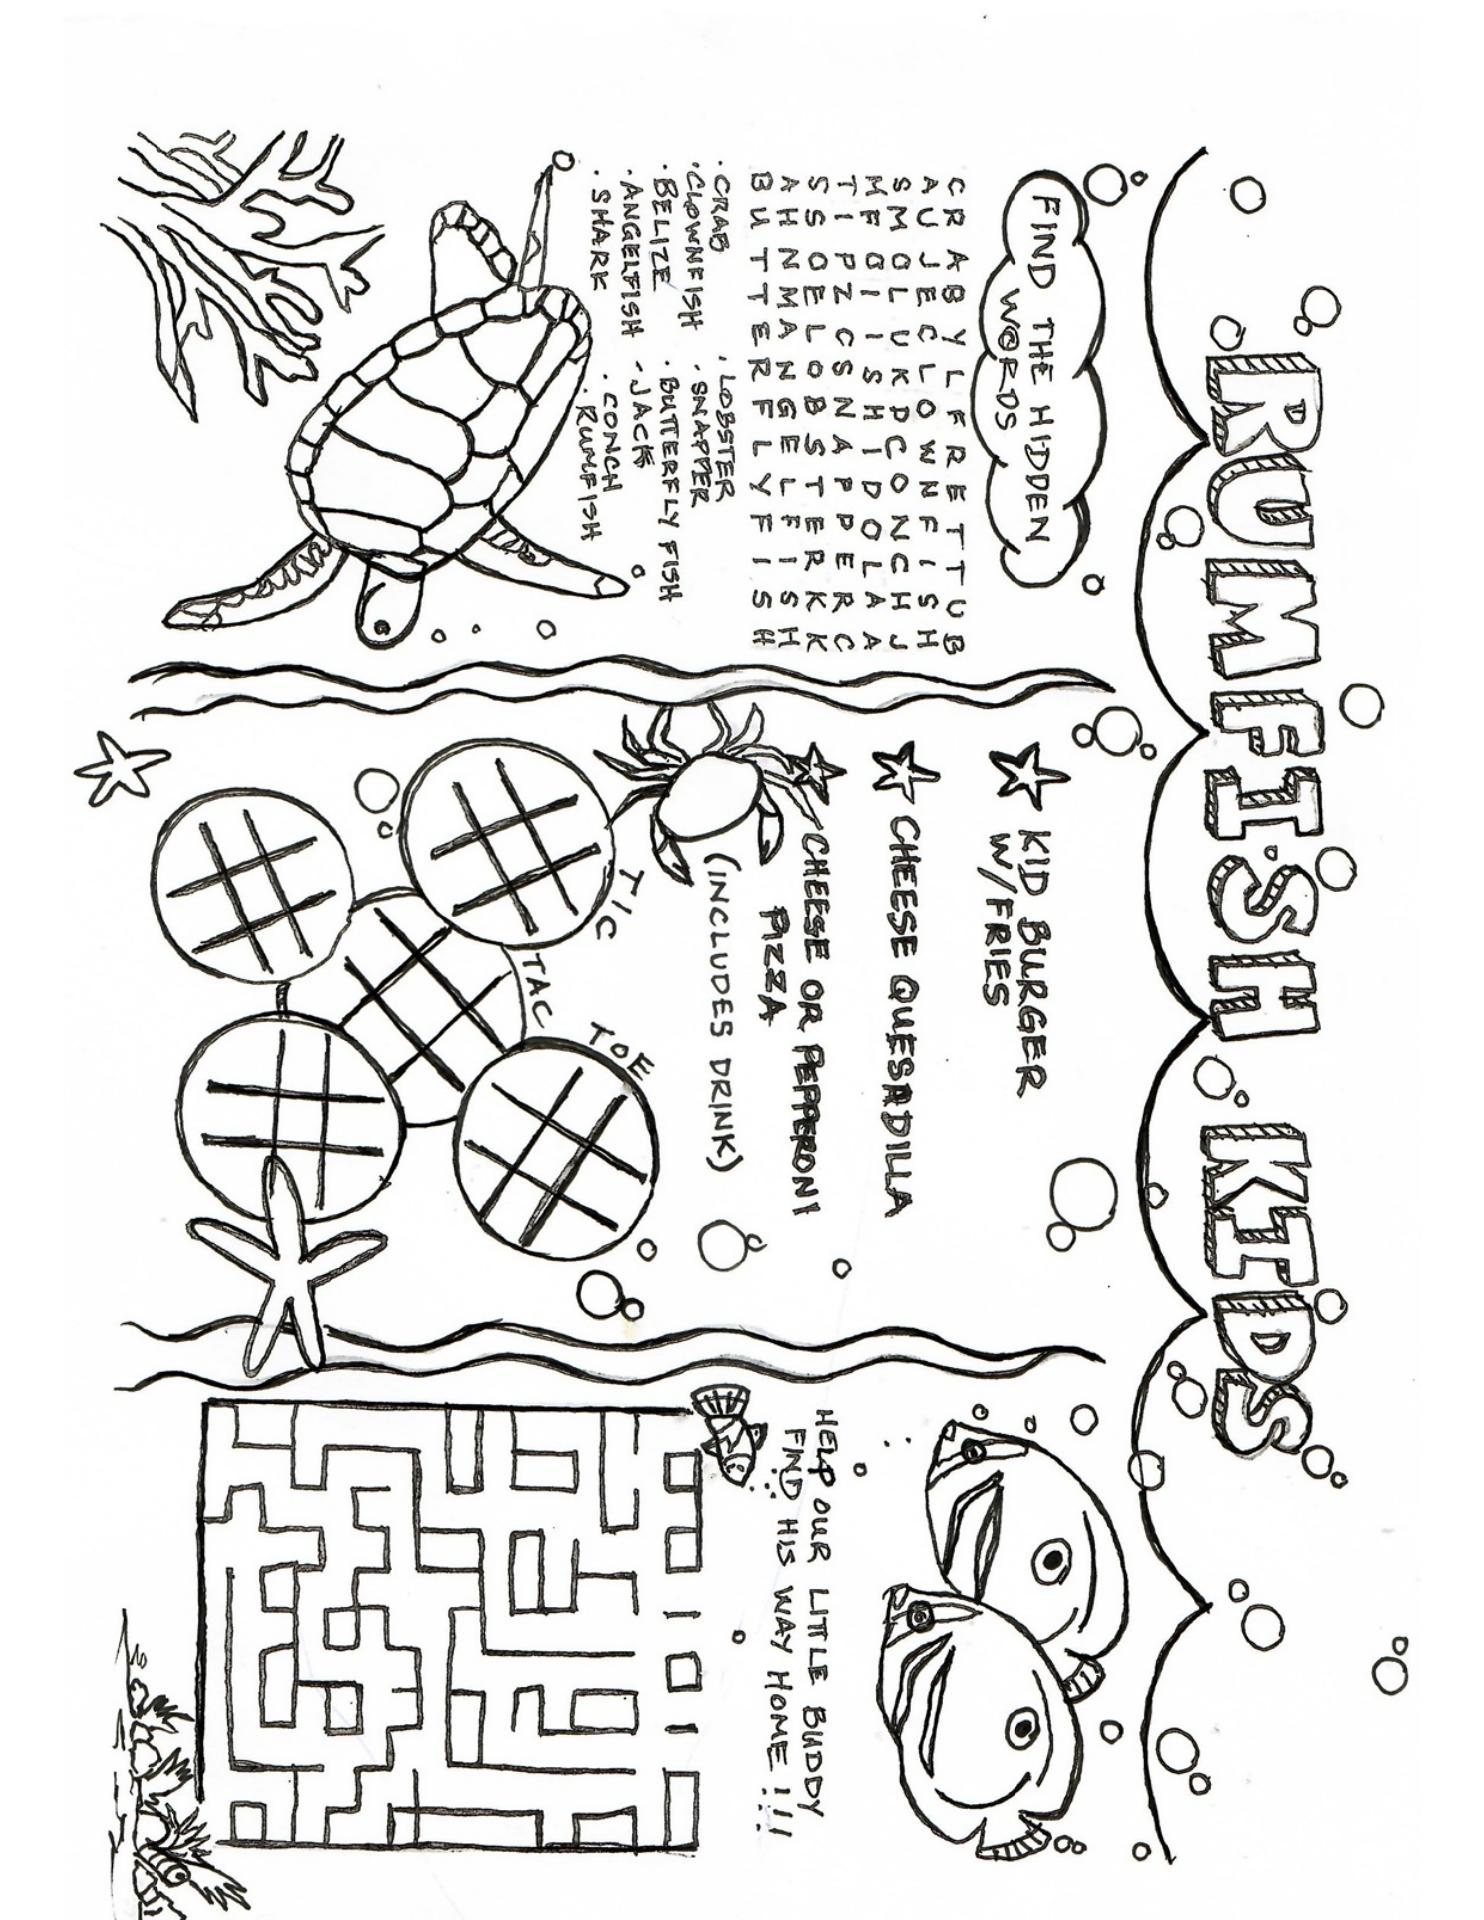 RUMFISH KIDS
FIND THE HIDDEN
WORDS
C R A B Y L F R E T T U B
A U J E C L O W N F I S H
S M O L U K P C O N C H J
M F O I I S H I D O L A A
T I P Z C S N A P P E R C
S S O E L O B S T E R K K
A H N M A N G E L F I S H
B U T T E R F L Y F I S H
· CRAB
· CLOWNFISH
· BELIZE
· ANGELFISH
· SHARK
· LOBSTER
· SNAPPER
· BUTTERFLY FISH
- JACK
· CONCH
· RUMFISH
KID BURGER
W/FRIES
CHEESE QUESADILLA
CHEESE OR PEPPERONI
PIZZA
(INCLUDES DRINK)
TIC
TAC
TOE
HELP OUR LITTLE BUDDY
FIND HIS WAY HOME!!!